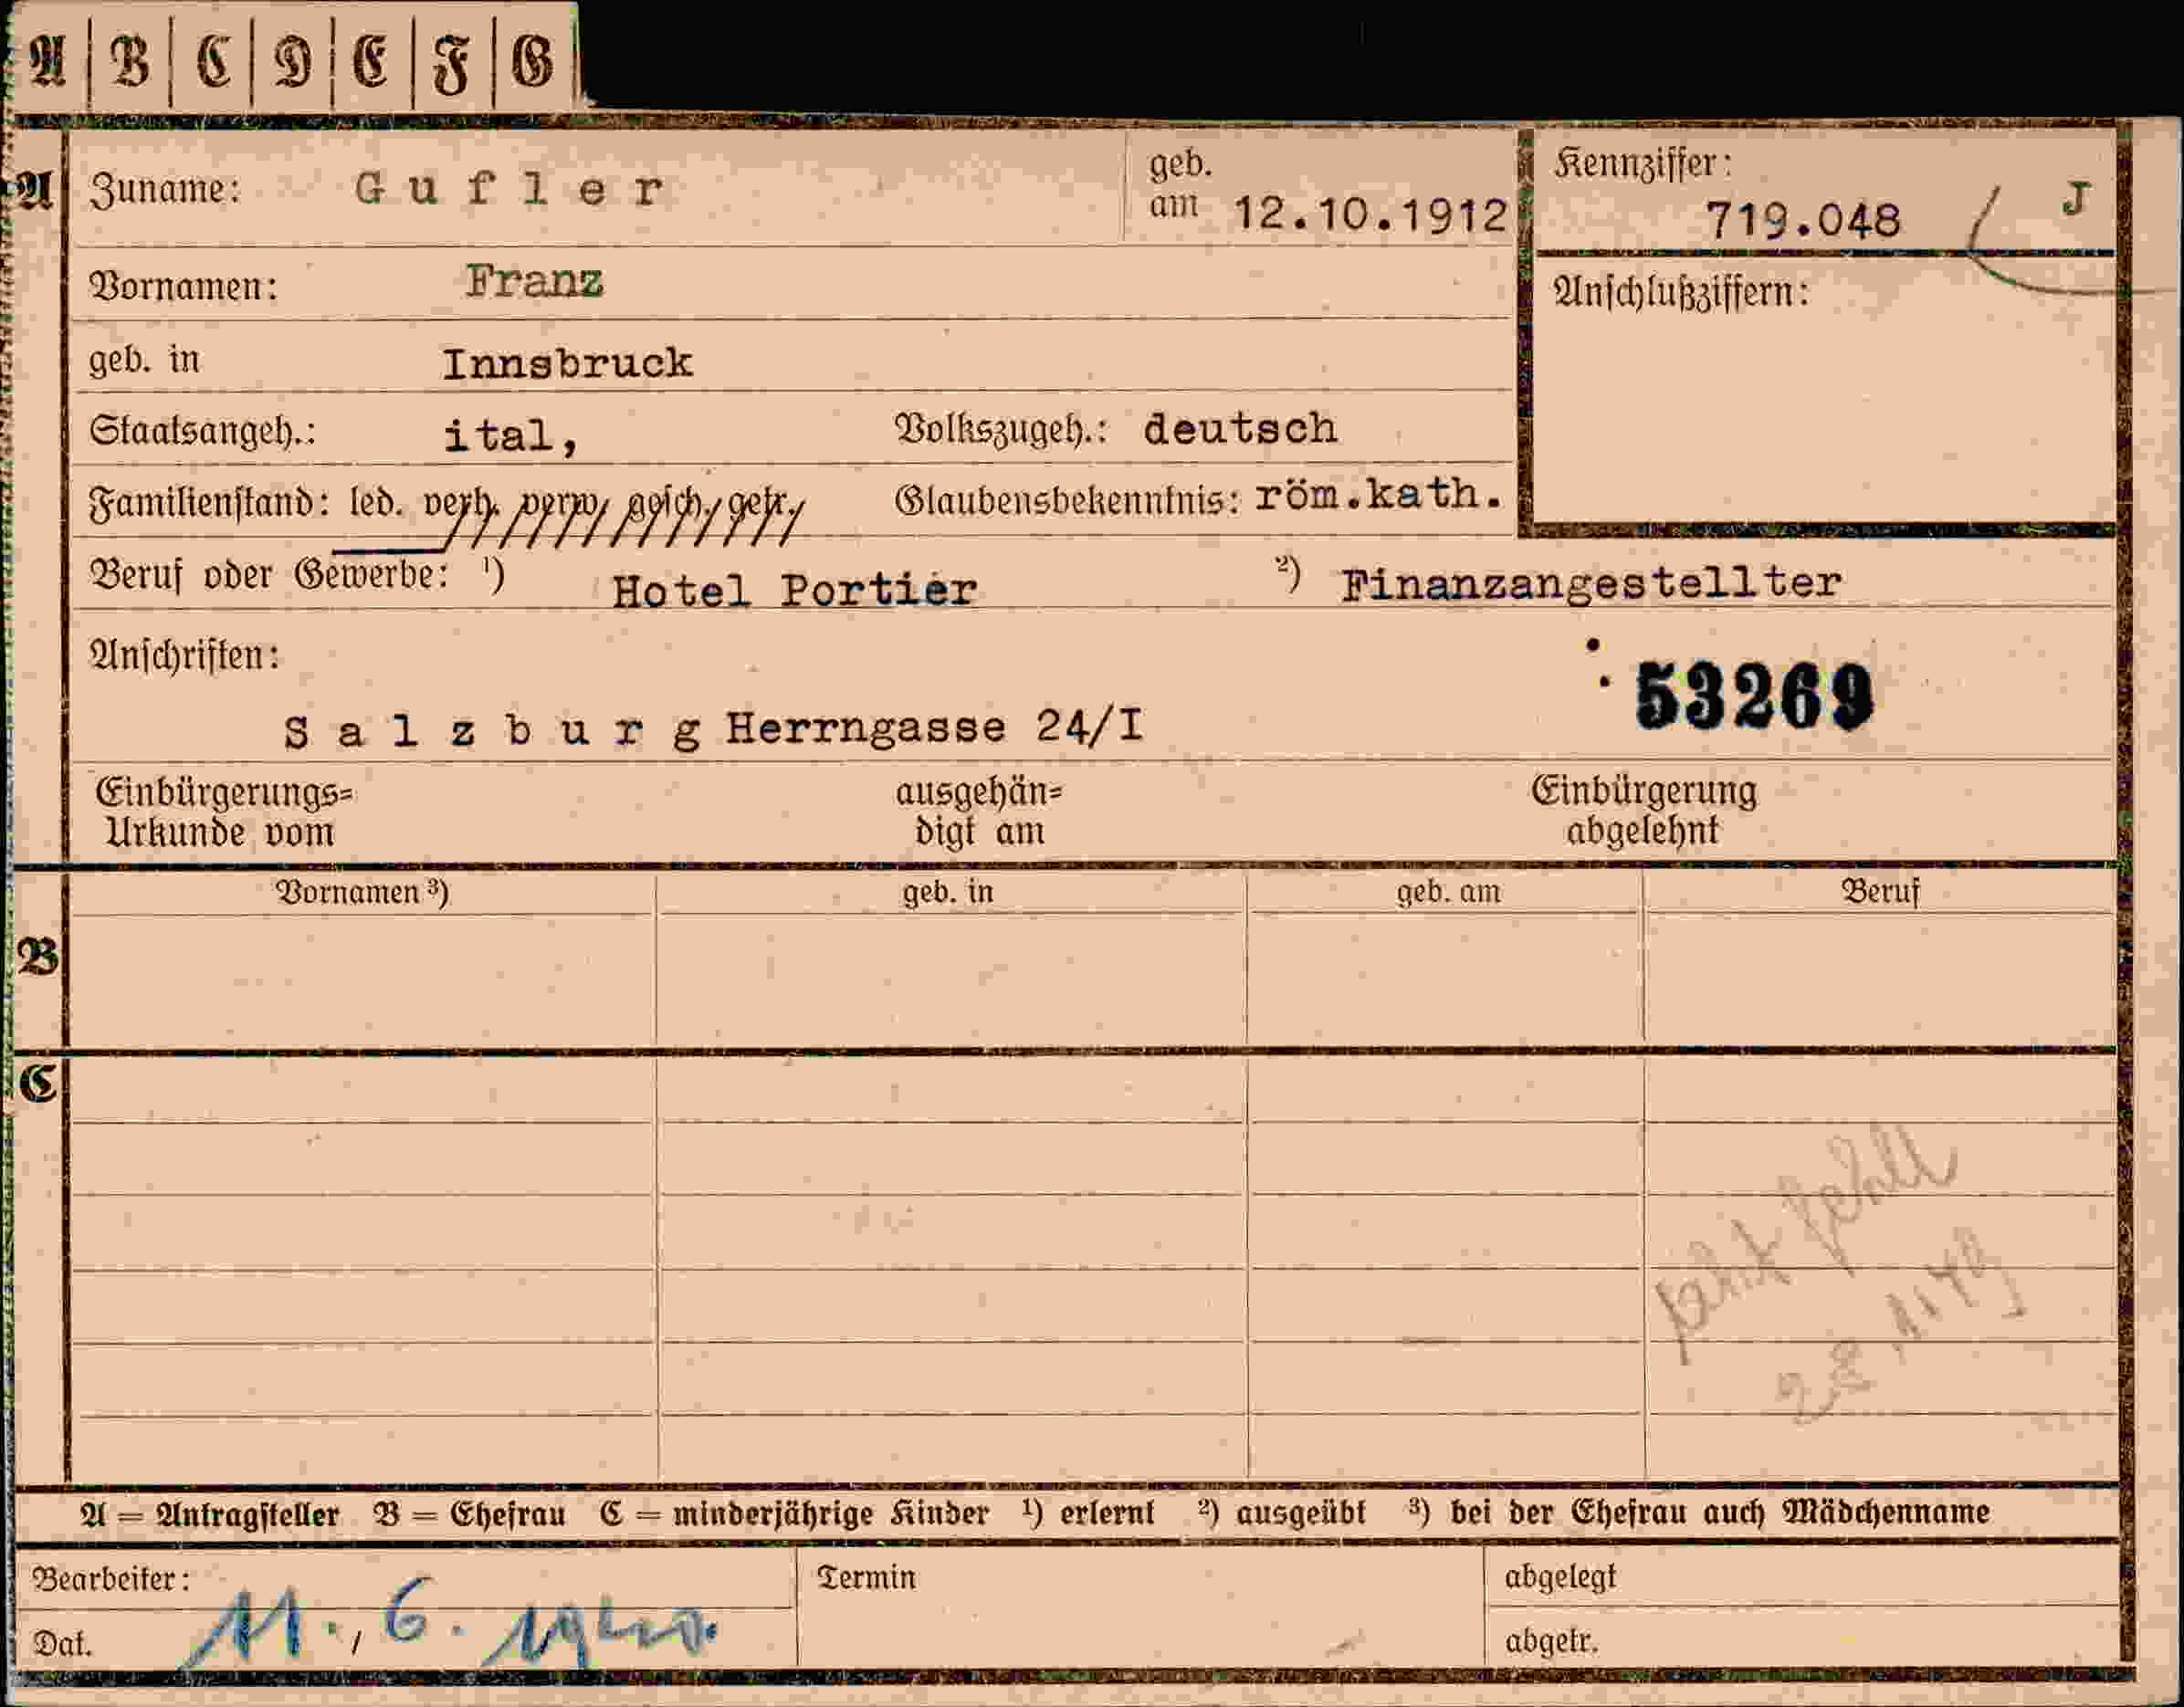 A B C D E F G
A Zuname: Gufler geb. am 12.10.1912 Kennziffer: 719.048 / J
Vornamen: Franz Anschlußziffern:
geb. in Innsbruck
Staatsangeh.: ital, Volkszugeh.: deutsch
Familienstand: led. verh. verw. gesch. getr. Glaubensbekenntnis: röm.kath.
Beruf oder Gewerbe: ¹) Hotel Portier ²) Finanzangestellter
Anschriften:
53269
Salzburg Herrngasse 24/I
Einbürgerungs= ausgehän= Einbürgerung
Urkunde vom digt am abgelehnt
Vornamen ³) geb. in geb. am Beruf
B
C
A = Antragsteller B = Ehefrau C = minderjährige Kinder ¹) erlernt ²) ausgeübt ³) bei der Ehefrau auch Mädchenname
Bearbeiter: Termin abgelegt
Dat. 11. 6. 1940. abgetr.